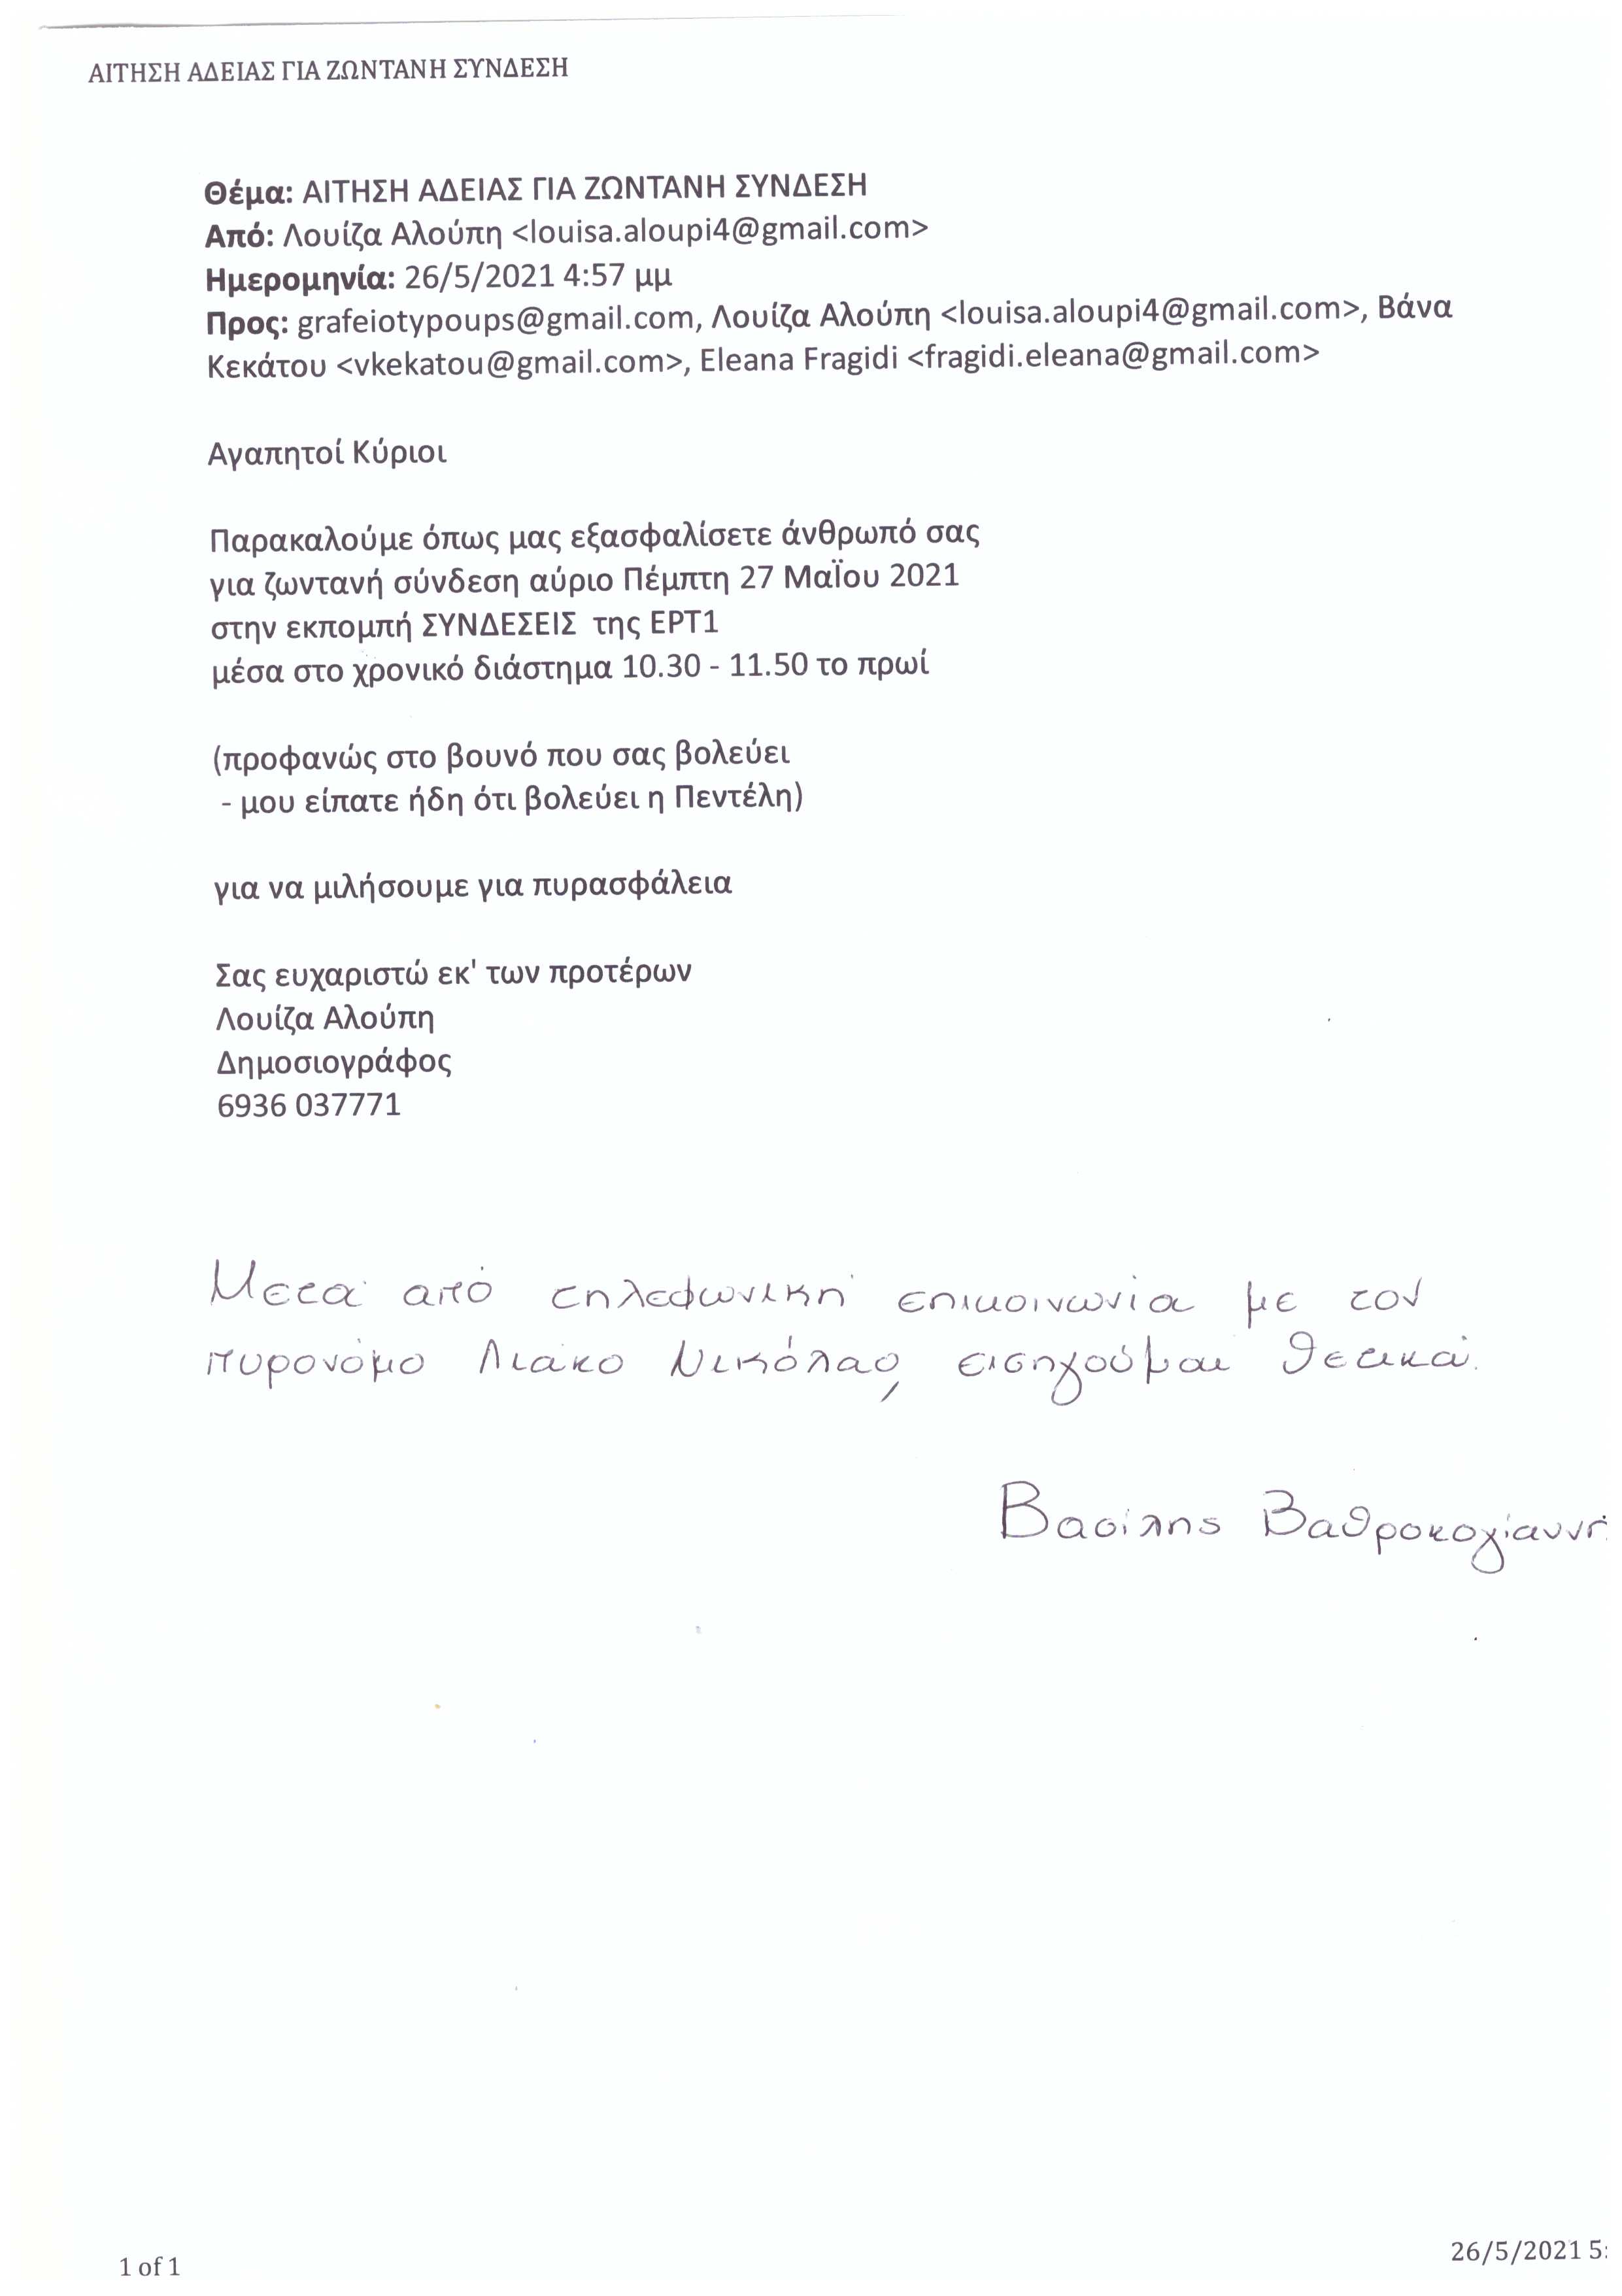 ΑΙΤΗΣΗ ΑΔΕΙΑΣ ΓΙΑ ΖΩΝΤΑΝΗ ΣΥΝΔΕΣΗ
Θέμα: ΑΙΤΗΣΗ ΑΔΕΙΑΣ ΓΙΑ ΖΩΝΤΑΝΗ ΣΥΝΔΕΣΗ
Από: Λουίζα Αλούπη <louisa.aloupi4@gmail.com>
Ημερομηνία: 26/5/2021 4:57 μμ
Προς: grafeiotypoups@gmail.com, Λουίζα Αλούπη <louisa.aloupi4@gmail.com>, Βάνα
Κεκάτου <vkekatou@gmail.com>, Eleana Fragidi <fragidi.eleana@gmail.com>
Αγαπητοί Κύριοι
Παρακαλούμε όπως μας εξασφαλίσετε άνθρωπό σας
για ζωντανή σύνδεση αύριο Πέμπτη 27 Μαΐου 2021
στην εκπομπή ΣΥΝΔΕΣΕΙΣ της ΕΡΤ1
μέσα στο χρονικό διάστημα 10.30 - 11.50 το πρωί
(προφανώς στο βουνό που σας βολεύει
- μου είπατε ήδη ότι βολεύει η Πεντέλη)
για να μιλήσουμε για πυρασφάλεια
Σας ευχαριστώ εκ' των προτέρων
Λουίζα Αλούπη
Δημοσιογράφος
6936 037771
Μετά από τηλεφωνική επικοινωνία με τον
πυρονόμο Λιάκο Νικόλαο, εισηγούμαι θετικά.
Βασίλης Βαθρακογιάννη
1 of 1
26/5/2021 5: